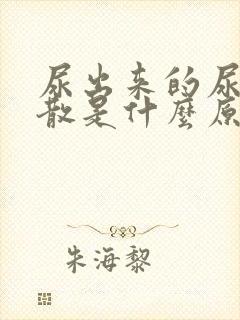 尿出来的尿
散是什麼原
朱海黎